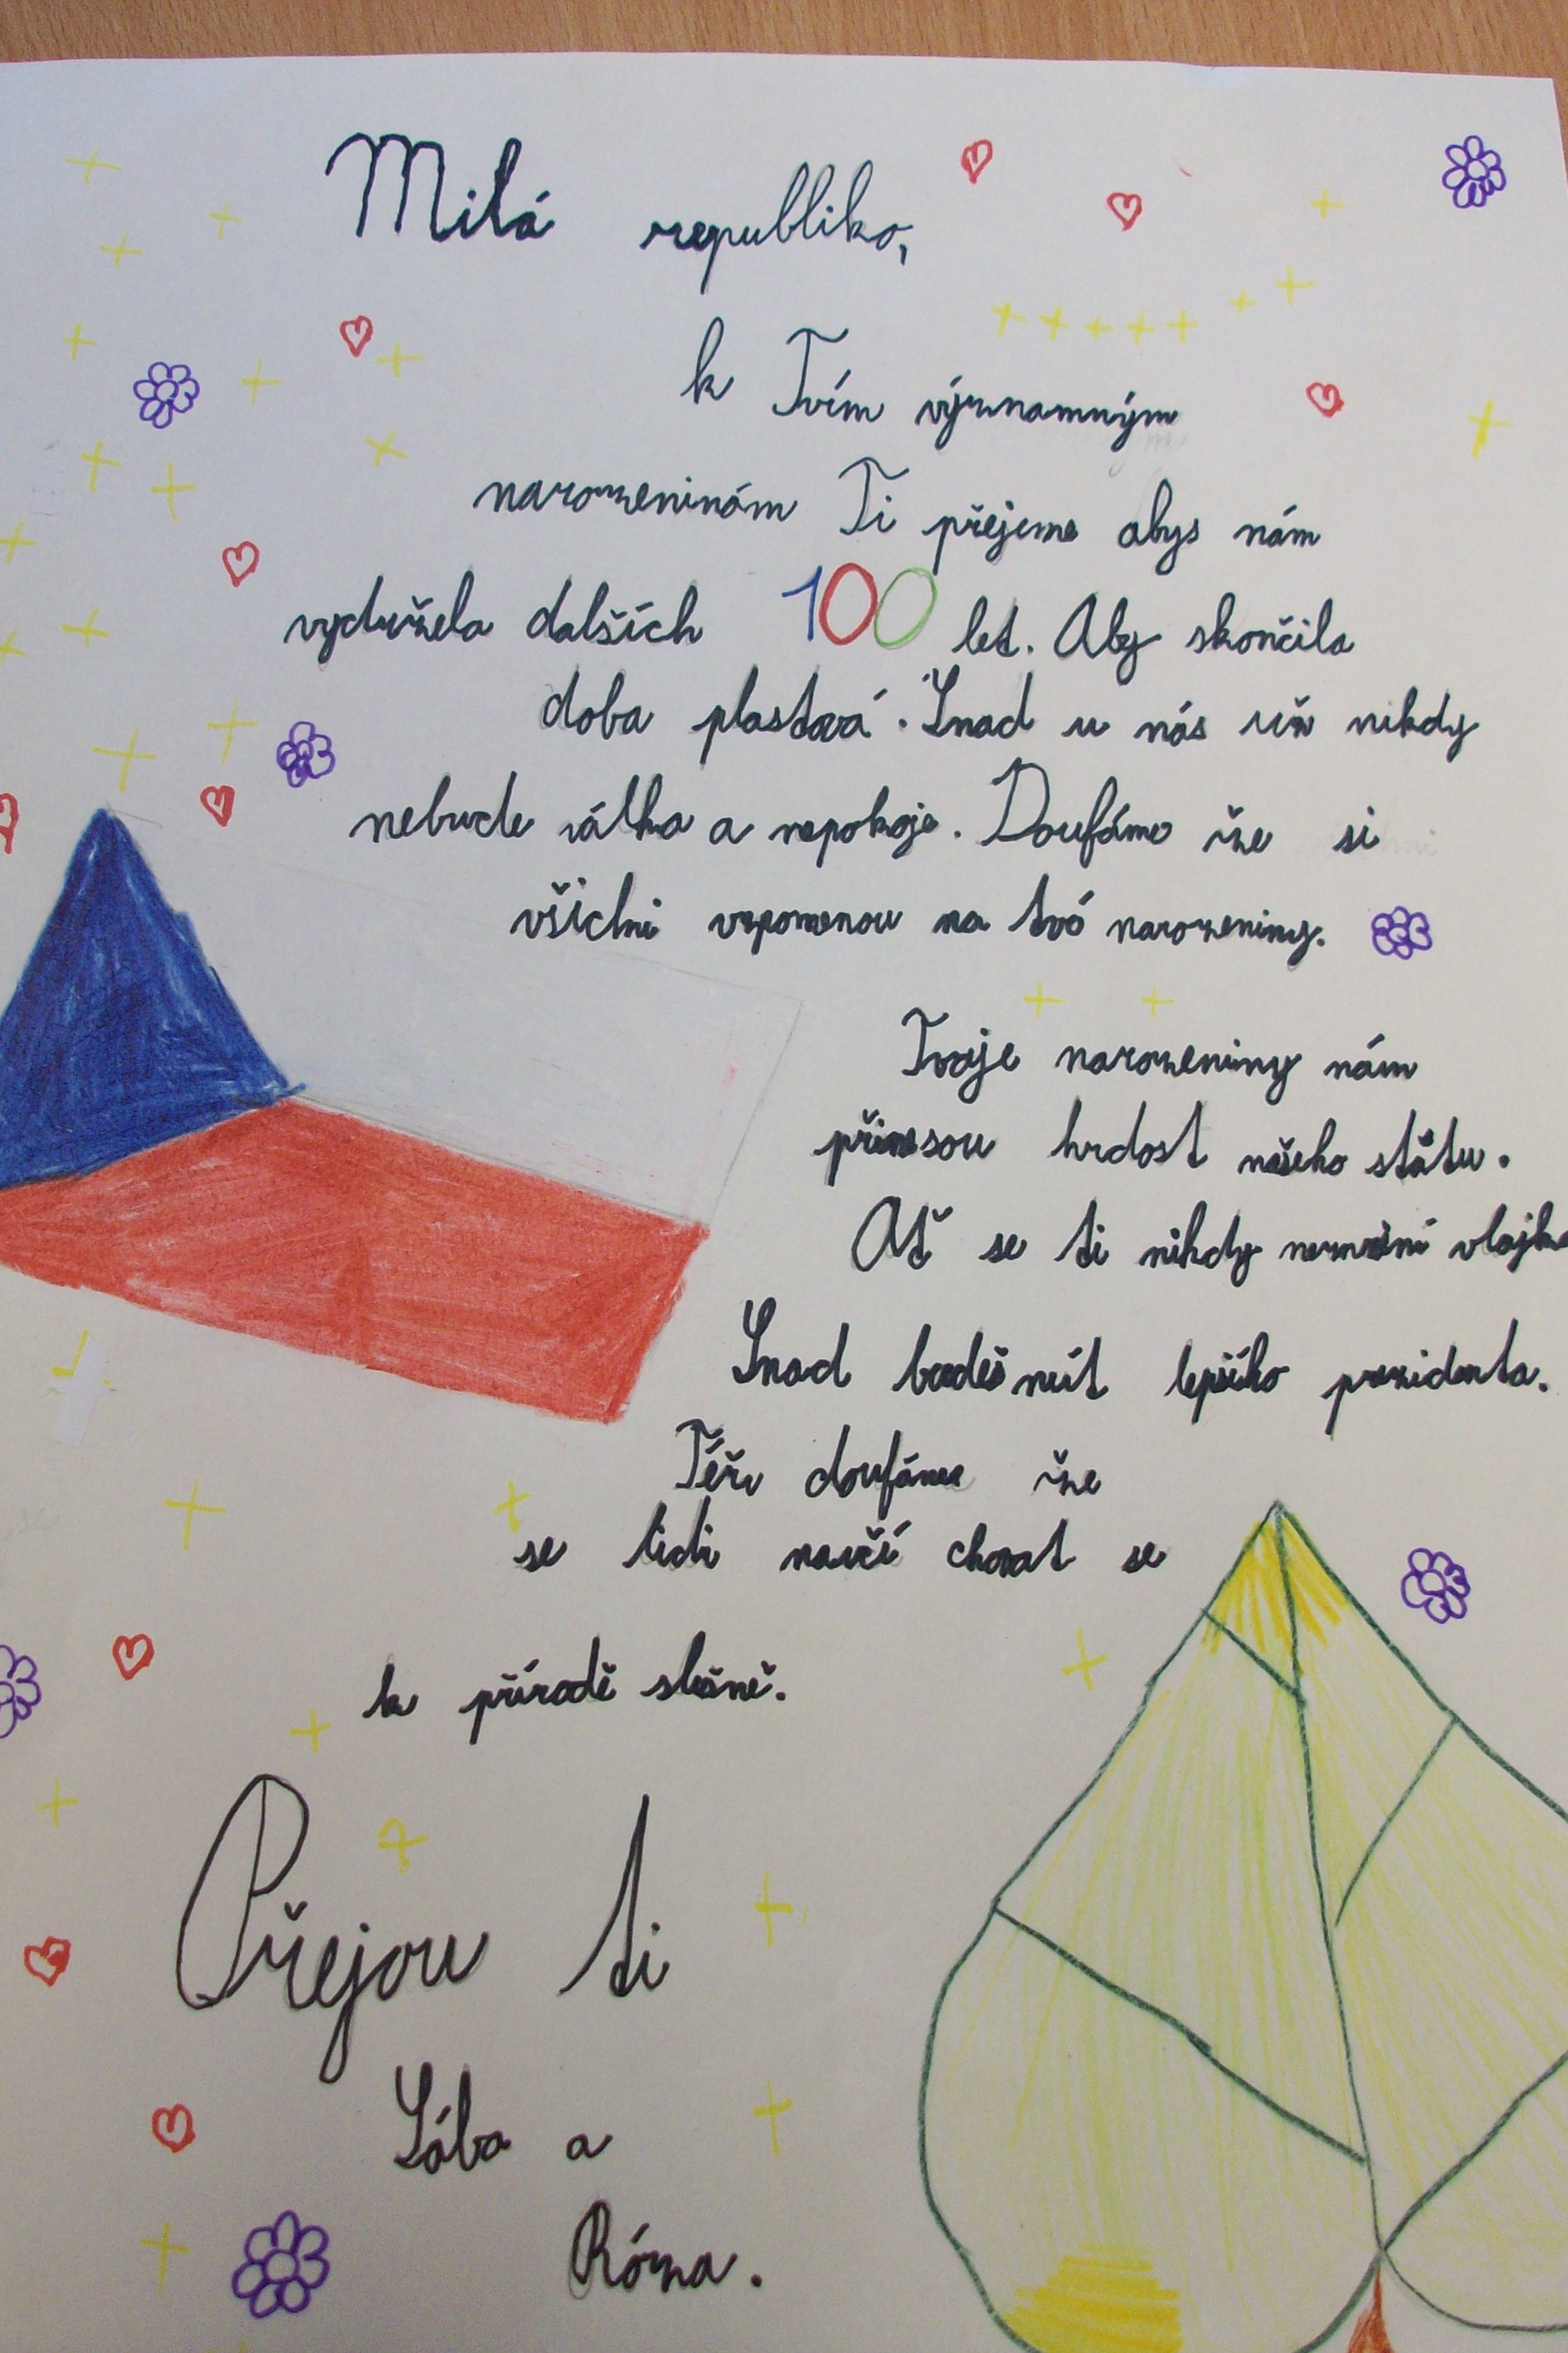 Milá republiko,
k Tvím významným
narozeninám Ti přejeme abys nám
vydržela dalších 100 let. Aby skončila
doba plastová. Snad u nás už nikdy
nebude válka a nepokoje. Doufáme že si
všichni vzpomenou na tvé narozeniny.
Tvoje narozeniny nám
přinesou hrdost našeho státu.
Ať se ti nikdy nezmění vlajka
Snad budeš mít lepšího prezidenta.
Též doufáme že
se lidi naučí chovat se
k přírodě slušně.
Přejou ti
Sába a
Róza.